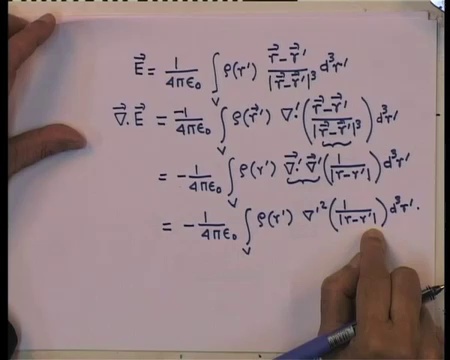 E⃗ = 1/4πε₀ ∫_V ρ(r') (r⃗ − r⃗')/|r⃗ − r⃗'|³ d³r'
∇⃗·E⃗ = −1/4πε₀ ∫_V ρ(r⃗') ∇'·((r⃗ − r⃗')/|r⃗ − r⃗'|³) d³r'
= −1/4πε₀ ∫_V ρ(r') ∇⃗'·∇⃗'(1/|r − r'|) d³r'
= −1/4πε₀ ∫_V ρ(r') ∇'²(1/|r − r'|) d³r'.